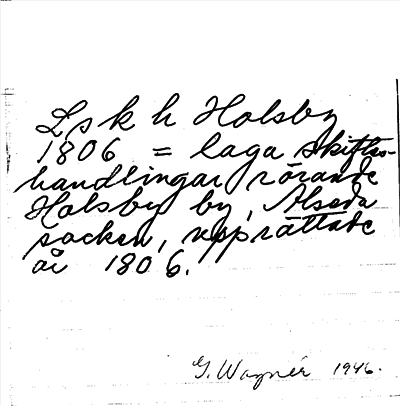 Lskh Holsby
1806 = laga skiftes-
handlingar rörande
Holsby by, Alseda
socken, upprättade
år 1806.
G. Wagnér 1946.